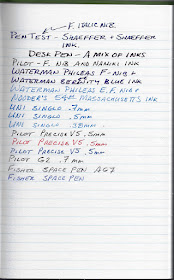 F. ITALIC NIB.
PEN TEST - SHAEFFER + SHAEFFER
INK.
DESK PEN - A MIX OF INKS
PILOT - F. NIB AND NAMIKI INK
WATERMAN PHILEAS F-NIB +
WATERMAN SERENITY BLUE INK
WATERMAN PHILEAS E.F. NIB +
NOODLER'S MASSACHUSETTS INK
UNI SINGLO .7mm
UNI SINGLO .5mm
UNI SINGLO .38mm
PILOT PRECISE V5 .5mm
PILOT PRECISE V5 .5mm
PILOT PRECISE V5 .5mm
PILOT G2 .7mm
FISHER SPACE PEN AG7
FISHER SPACE PEN